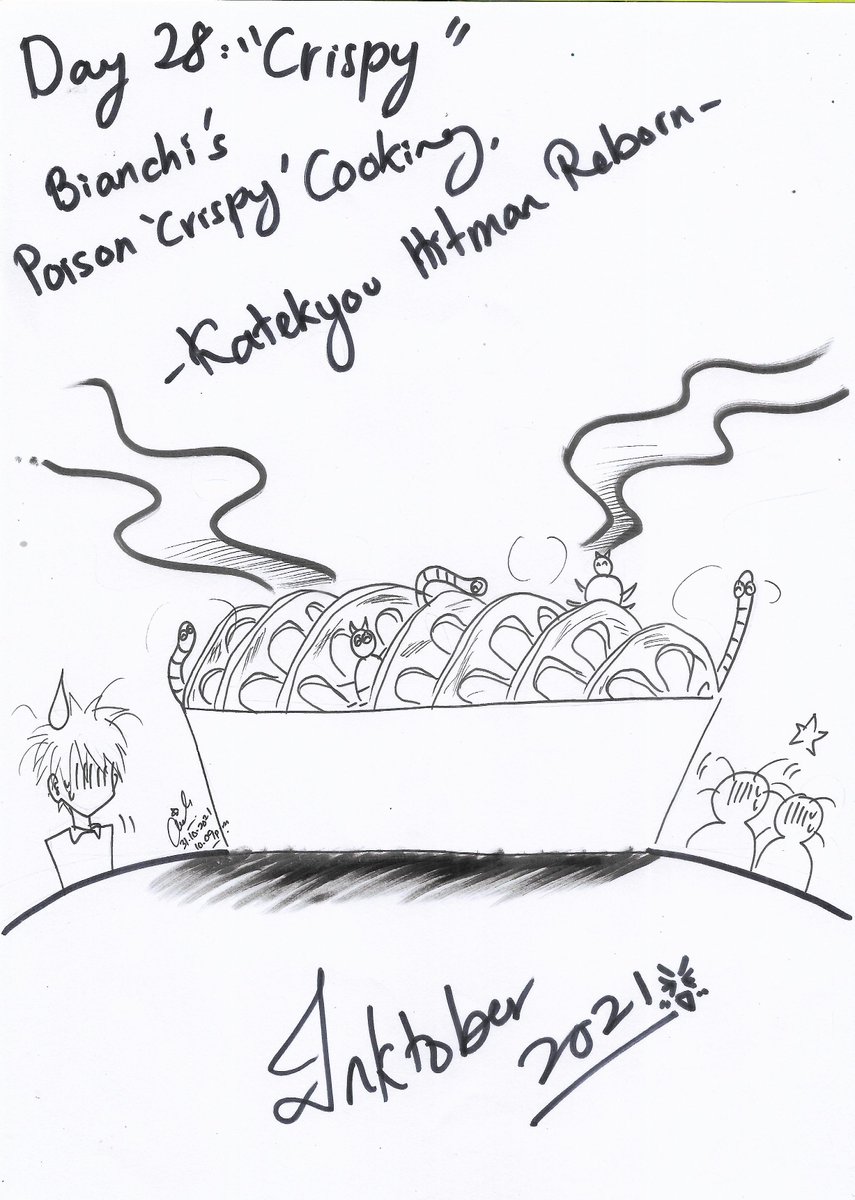 Day 28: "Crispy"
Bianchi's
Poison 'Crispy' Cooking.
-Katekyou Hitman Reborn-
31.10.2021
10.09pm
Inktober
2021